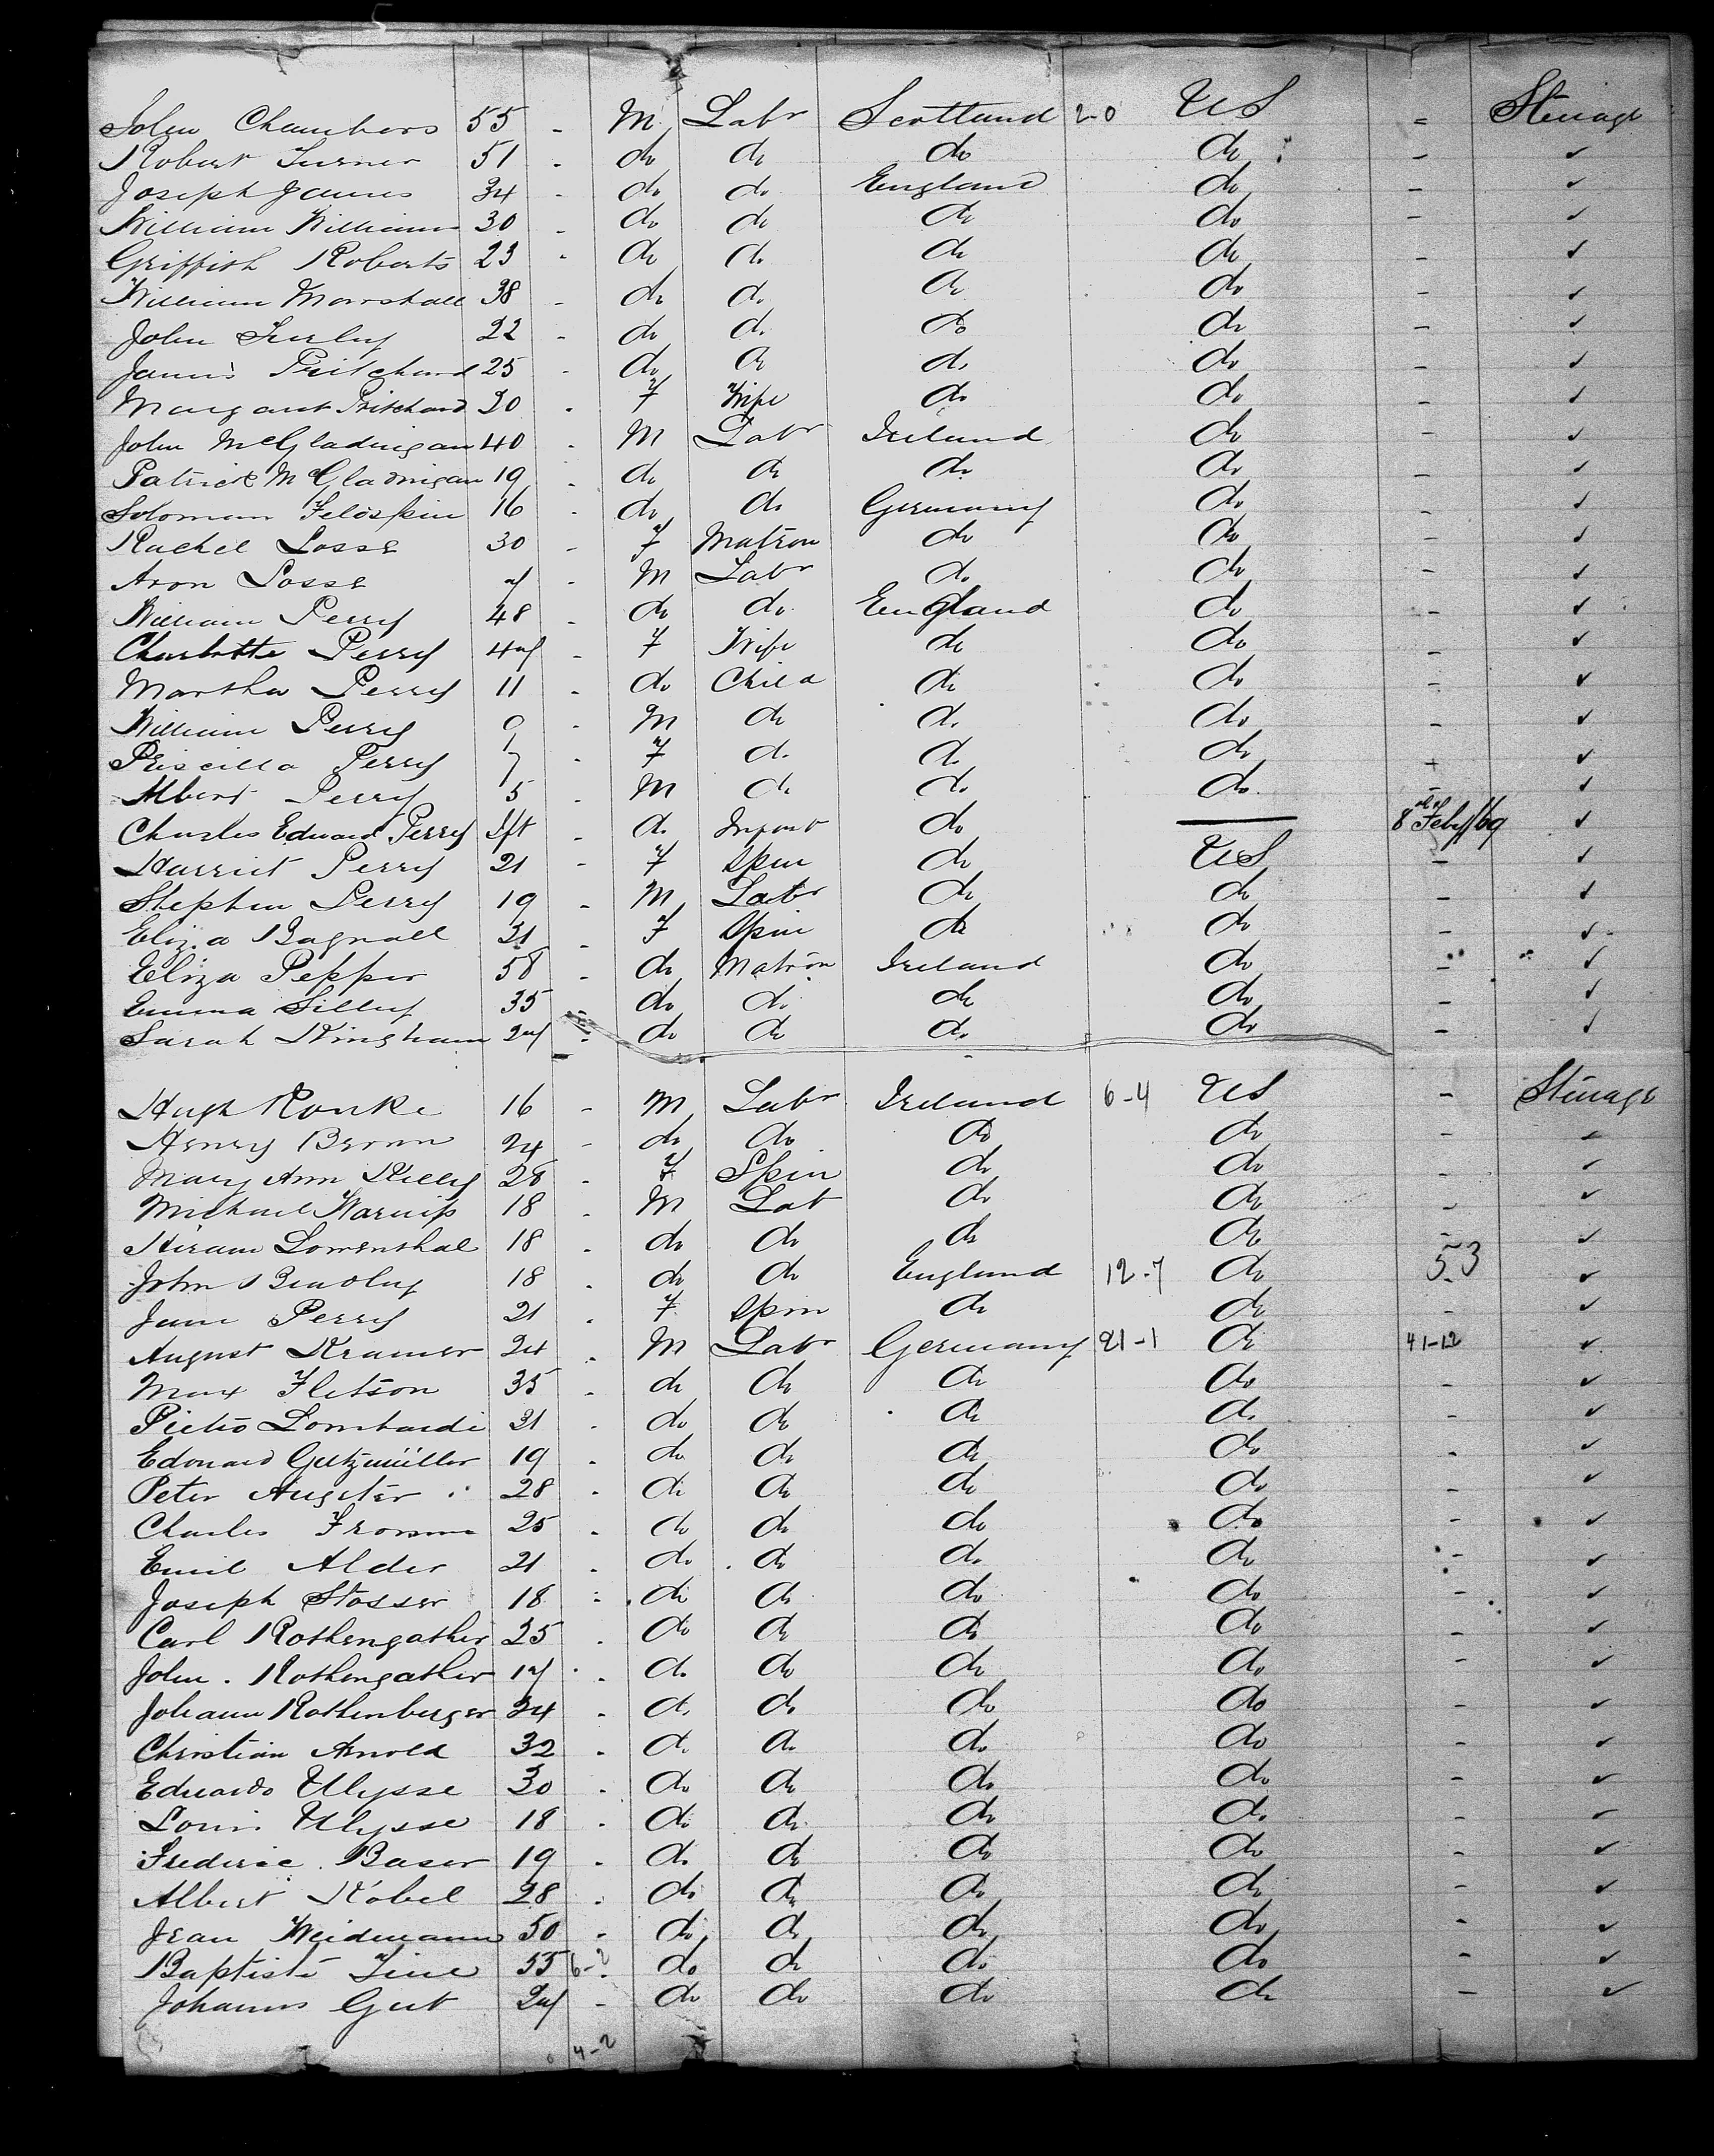 John Chambers 55 - M Labr Scotland 2-0 US - Steerage
Robert Turner 51 - do do do do - ✓
Joseph James 34 - do do England do - ✓
William Williams 30 - do do do do - ✓
Griffith Roberts 23 - do do do do - ✓
William Marshall 38 - do do do do - ✓
John 22 - do do do do - ✓
James Pritchard 25 - do do do do - ✓
Margaret Pritchard 20 - F Wife do do - ✓
John McGladrigan 40 - M Labr Ireland do - ✓
Patrick McGladrigan 19 - do do do do - ✓
Solomon 16 - do do Germany do - ✓
Rachel Losse 30 - F Matron do do - ✓
Aron Losse 7 - M Labr do do - ✓
William Perry 48 - do do England do - ✓
Charlotte Perry 47 - F Wife do do - ✓
Martha Perry 11 - do Child do do - ✓
William Perry 9 - M do do do - ✓
Priscilla Perry 7 - F do do do - ✓
Albert Perry 5 - M do do do - ✓
Charles Edward Perry Inft - do Infant do — 8 Feby/69 ✓
Harriet Perry 21 - F Spin do US - ✓
Stephen Perry 19 - M Labr do do - ✓
Eliza Bagnall 21 - F Spin do do - ✓
Eliza Pepper 58 - do Matron Ireland do - ✓
Emma Silley 35 - do do do do - ✓
Sarah Kingham 27 - do do do do - ✓
Hugh Rourke 16 - M Labr Ireland 6-4 US - Steerage
Henry 24 - do do do do - ✓
Mary Ann Kelly 28 - F Spin do do - ✓
Michael 18 - M Lab do do - ✓
Hiram Lowenthal 18 - do do do do - ✓
John Bradley 18 - do do England 12-7 do 53 ✓
Jane Perry 21 - F Spin do do - ✓
August Kramer 24 - M Labr Germany 21-1 do 41-12 ✓
Max Fletson 35 - do do do do - ✓
Pietro Lombardi 21 - do do do do - ✓
Edouard Gutzmüller 19 - do do do do - ✓
Peter Augster 28 - do do do do - ✓
Charles Fromm 25 - do do do do - ✓
Emil Alder 21 - do do do do - ✓
Joseph Stosser 18 - do do do do - ✓
Carl Rothengather 25 - do do do do - ✓
John Rothengather 17 - do do do do - ✓
Johann Rothenberger 24 - do do do do - ✓
Christian Arnold 32 - do do do do - ✓
Eduardo Ulysse 30 - do do do do - ✓
Louis Ulysse 18 - do do do do - ✓
Frederic Baser 19 - do do do do - ✓
Albert Kobel 28 - do do do do - ✓
Jean Weidmann 50 - do do do do - ✓
Baptiste 55 6-2 do do do do - ✓
Johannes Gut 27 - do do do do - ✓
4-2